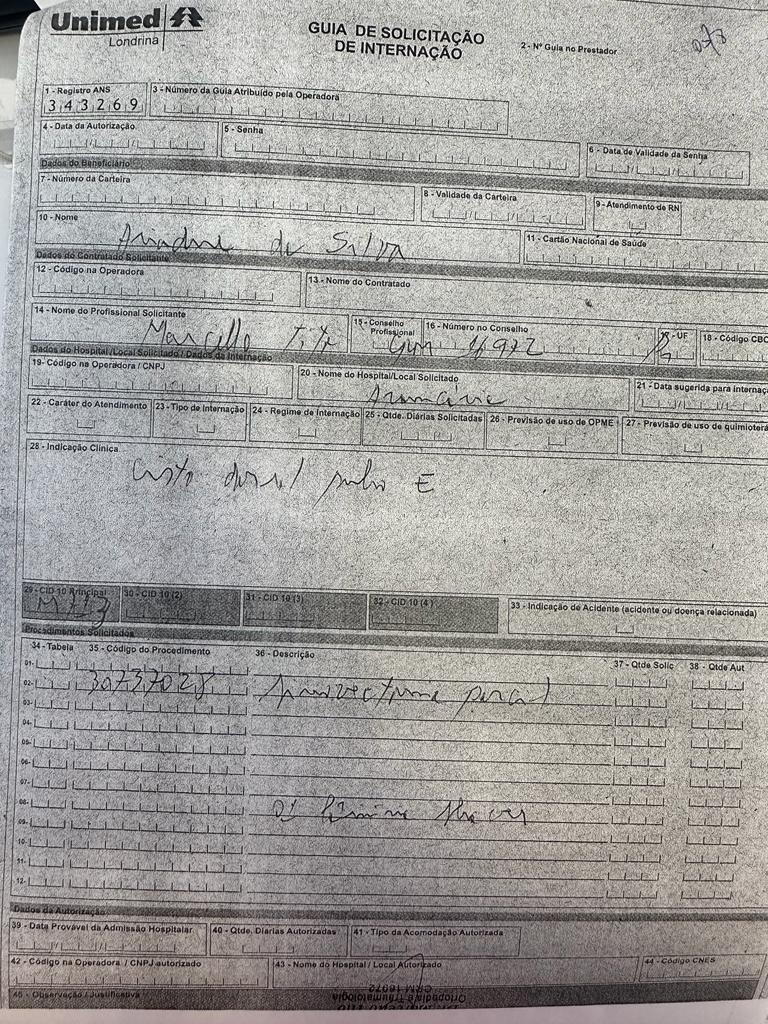 Unimed
Londrina
GUIA DE SOLICITAÇÃO
DE INTERNAÇÃO
2 - Nº Guia no Prestador
1 - Registro ANS
343269
3 - Número da Guia Atribuído pela Operadora
4 - Data da Autorização
5 - Senha
6 - Data de Validade da Senha
Dados do Beneficiário
7 - Número da Carteira
8 - Validade da Carteira
9 - Atendimento de RN
10 - Nome
da Silva
11 - Cartão Nacional de Saúde
Dados do Contratado Solicitante
12 - Código na Operadora
13 - Nome do Contratado
14 - Nome do Profissional Solicitante
Marcello Tito
15 - Conselho Profissional
16 - Número no Conselho
16972
- UF
18 - Código CBO
Dados do Hospital /Local Solicitado / Dados da Internação
19- Código na Operadora / CNPJ
20 - Nome do Hospital/Local Solicitado
21 - Data sugerida para internaç
22 - Caráter do Atendimento
23 - Tipo de Internação
24 - Regime de Internação
25 - Qtde. Diárias Solicitadas
26 - Previsão de uso de OPME
27 - Previsão de uso de quimioterá
28 - Indicação Clínica
Cisto dorsal punho E
29 - CID 10 Principal
30 - CID 10 (2)
31 - CID 10 (3)
32 - CID 10 (4)
33 - Indicação de Acidente (acidente ou doença relacionada)
Procedimentos Solicitados
34 - Tabela
35 - Código do Procedimento
36 - Descrição
37 - Qtde Solic
38 - Qtde Aut
01-
02-
30737028
03-
04-
05-
06-
07-
08-
09-
10-
11-
12-
Dados da Autorização
39 - Data Provável da Admissão Hospitalar
40 - Qtde. Diárias Autorizadas
41 - Tipo da Acomodação Autorizada
42 - Código na Operadora / CNPJ autorizado
43 - Nome do Hospital / Local Autorizado
44 - Código CNES
45 - Observação / Justificativa
CRM 16972
Ortopedia e Traumatologia